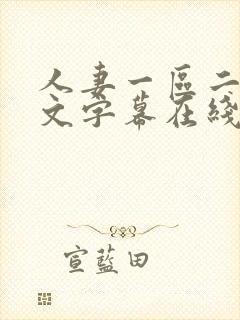 人妻一區二
文字幕在綫
宣藍田